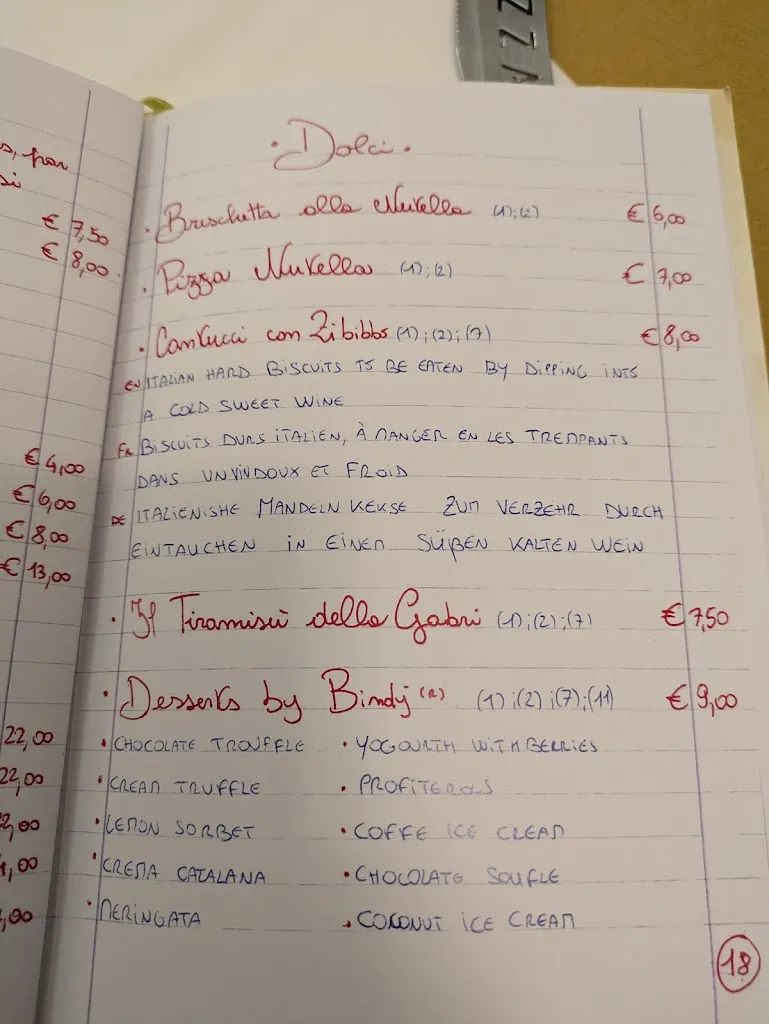 ZZA
s, par
si
€ 7,50
€ 8,00
€ 4,00
€ 6,00
€ 8,00
€ 13,00
22,00
22,00
,00
,00
,00
• Dolci •
• Bruschetta alla Nutella (1);(2) € 6,00
• Pizza Nutella (1);(2) € 7,00
• Cantucci con Zibibbo (1);(2);(7) € 8,00
EN ITALIAN HARD BISCUITS TO BE EATEN BY DIPPING INTO
A COLD SWEET WINE
FR BISCUITS DURS ITALIEN, À MANGER EN LES TREMPANTS
DANS UN VIN DOUX ET FROID
DE ITALIENISHE MANDELN KEKSE ZUM VERZEHR DURCH
EINTAUCHEN IN EINEM SÜßEN KALTEN WEIN
• Il Tiramisù della Gabri (1);(2);(7) € 7,50
• Desserts by Bindj (R) (1);(2);(7);(11) € 9,00
• CHOCOLATE TROUFFLE • YOGOURTH WITH BERRIES
• CREAM TRUFFLE • PROFITEROLS
• LEMON SORBET • COFFE ICE CREAM
• CREMA CATALANA • CHOCOLATE SOUFLE
• MERINGATA • COCONUT ICE CREAM
18